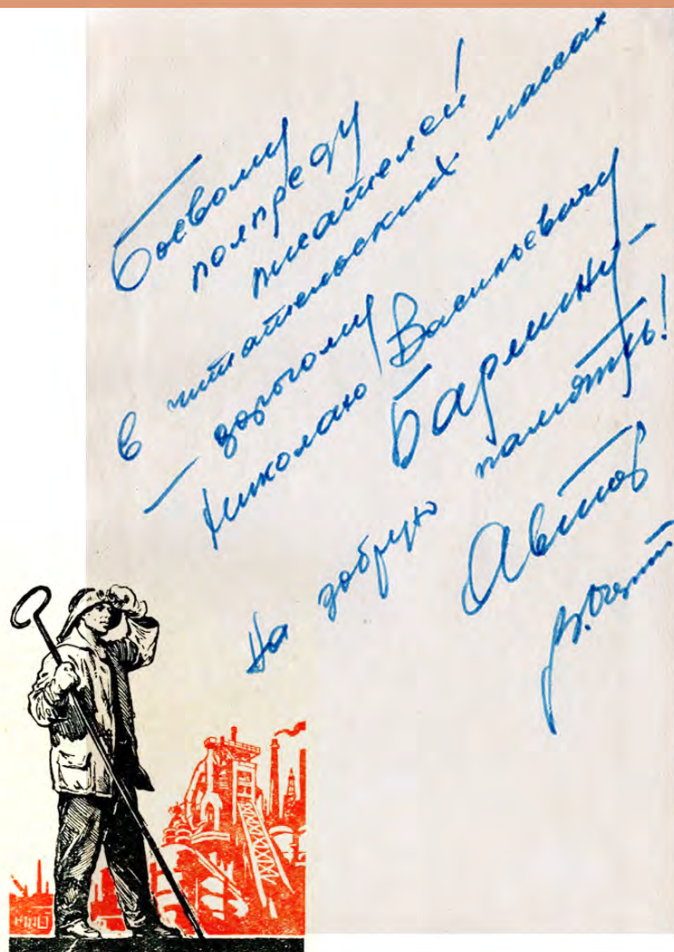 Боевому
полпреду
писателей
в читательских массах
— дорогому
Николаю Васильевичу
Бармину —
на добрую память!
Автор